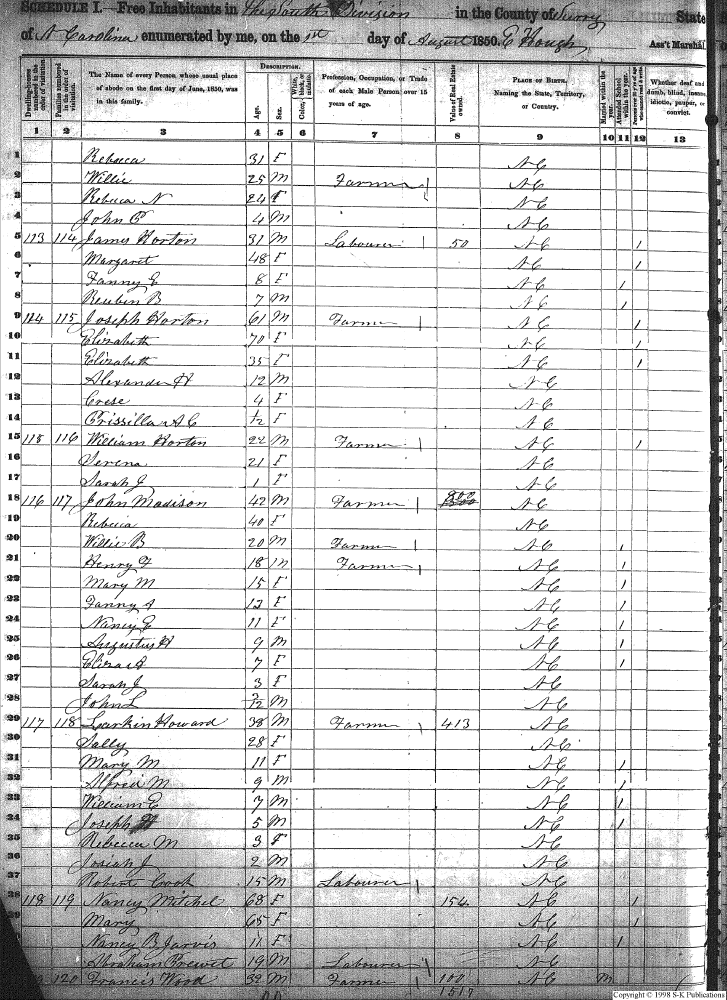 SCHEDULE I.—Free Inhabitants in the South Division in the County of Surry State
of N Carolina enumerated by me, on the 1st day of August 1850. E Hough Ass't Marshal
Dwelling-houses numbered in the order of visitation.
Families numbered in the order of visitation.
The Name of every Person whose usual place of abode on the first day of June, 1850, was in this family.
DESCRIPTION.
Age.
Sex.
White, black, or mulatto.
Color,
Profession, Occupation, or Trade of each Male Person over 15 years of age.
Value of Real Estate owned.
PLACE OF BIRTH. Naming the State, Territory, or Country.
Married within the year.
Attended School within the year.
Whether deaf and dumb, blind, insane, idiotic, pauper, or convict.
1 2 3 4 5 6 7 8 9 10 11 12 13
1 Rebecca 31 F NC
2 Willie 25 M Farmer NC
3 Rebecca N 24 F NC
4 John P 4 M NC
5 113 114 James Horton 31 M Labourer 50 NC 1
6 Margaret 48 F NC 1
7 Fanny E 8 F NC 1
8 Reuben B 7 M NC 1
9 114 115 Joseph Horton 61 M Farmer NC 1
10 Elizabeth 70 F NC 1
11 Elizabeth 35 F NC 1
12 Alexander H 12 M NC
13 Crese 4 F NC
14 Prissilla A C 1/2 F NC
15 115 116 William Horton 22 M Farmer NC 1
16 Serena 21 F NC
17 Sarah J 1 F NC
18 116 117 John Madison 42 M Farmer 800 NC
19 Rebecca 40 F NC
20 Willie B 20 M Farmer NC 1
21 Henry F 18 M Farmer NC 1
22 Mary M 15 F NC 1
23 Fanny A 13 F NC 1
24 Nancy E 11 F NC 1
25 Augustus H 9 M NC 1
26 Eliza A 7 F NC 1
27 Sarah J 3 F NC
28 John L 3/12 M NC
29 117 118 Larkin Howard 38 M Farmer 413 NC
30 Sally 28 F NC
31 Mary M 11 F NC 1
32 Alfred M 9 M NC 1
33 William E 7 M NC 1
34 Joseph 5 M NC 1
35 Rebecca M 3 F NC
36 Josiah J 2 M NC
37 Robert Cook 15 M Labourer NC
38 118 119 Nancy Mitchel 68 F 154 NC 1
39 Mary 65 F NC 1
Nancy B Jarvis 11 F NC 1
Abraham Prewet 19 M Labourer NC
120 Francis Wood 32 M Farmer 100 NC M
1517
Copyright © 1998 S-K Publications